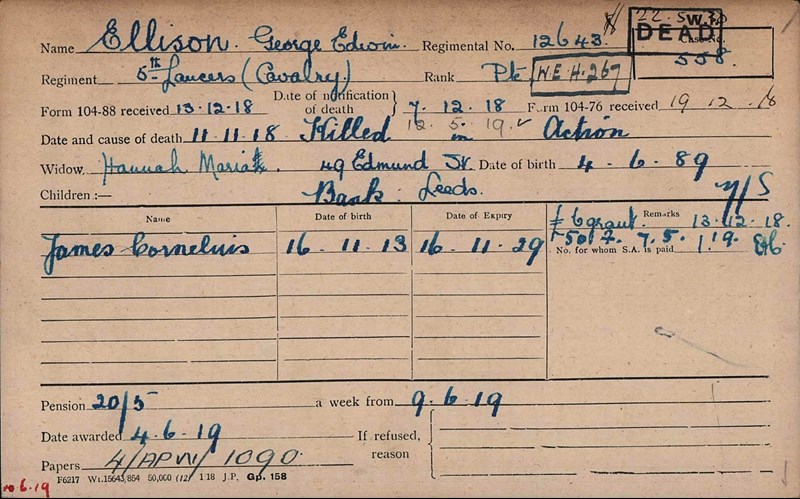 22. 5. 30
W.
DEAD
Name Ellison. George Edwin. Regimental No. 12643. Case No. 558.
Regiment 5th Lancers (Cavalry) Rank Pte W.E.H.267
Form 104-88 received 13.12.18 Date of notification of death } 7. 12. 18 Form 104-76 received 19 12 18
12. 5. 19.
Date and cause of death 11.11.18 Killed in Action
Widow Hannah Maria. 49 Edmund St. Date of birth 4. 6. 89
Children :— Bank. Leeds.
M/S
Name Date of birth Date of Expiry Remarks
£6 grant. 13.12.18.
James Cornelius 16 . 11 . 13 16 . 11 . 29
7. 5. 19.
No. for whom S.A. is paid 1.
Pension 20/5 a week from 9.6.19
Date awarded 4.6.19 If refused, reason
Papers 4/APW/1090
F6217 Wt.15643/854 50,000 (12) 1 18 J.P. Gp. 158
6.19